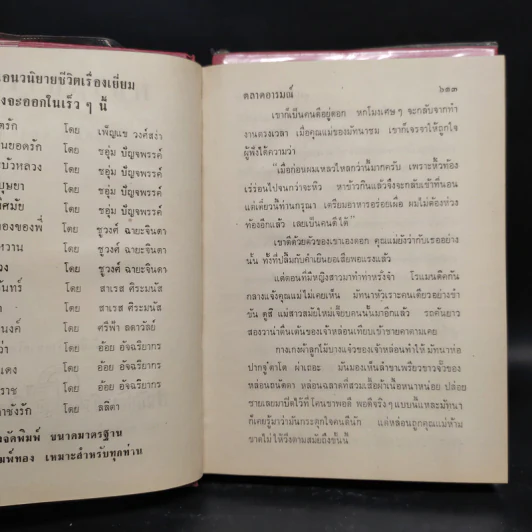 อนวนิยายชีวิตเรื่องเยี่ยม
งจะออกในเร็ว ๆ นี้
ตรัก โดย เพ็ญแข วงศ์สง่า
นยอดรัก โดย ชอุ่ม ปัญจพรรค์
บัวหลวง โดย ชอุ่ม ปัญจพรรค์
บุษยา โดย ชอุ่ม ปัญจพรรค์
ทิศมัย โดย ชอุ่ม ปัญจพรรค์
องของพี่ โดย ชูวงศ์ ฉายะจินดา
หวาน โดย ชูวงศ์ ฉายะจินดา
วง โดย ชูวงศ์ ฉายะจินดา
ันทร์ โดย สาเรส ศิระมนัส
โดย สาเรส ศิระมนัส
นงค์ โดย ศรีฟ้า ลดาวลัย์
ว่า โดย อ้อย อัจฉริยากร
แดง โดย อ้อย อัจฉริยากร
ราช โดย อ้อย อัจฉริยากร
าชังรัก โดย ลลิตา
งจัดพิมพ์ ขนาดมาตรฐาน
มพ์ทอง เหมาะสำหรับทุกท่าน
ตลาดอารมณ์ ๖๑๓
เขาก็เป็นคนดีอยู่ดอก หกโมงเศษ ๆ จะกลับจากทำ
งานตรงเวลา เมื่อคุณแม่ของมัทนาชม เขาก็เจรจาให้ถูกใจ
ผู้พึงได้ความว่า
“เมื่อก่อนผมเหลวไหลกว่านี้มากครับ เพราะหิ้วท้อง
เร่ร่อนไปจนกว่าจะหิว หาข้าวกินแล้วจึงจะกลับเข้าที่นอน
แต่เดี๋ยวนี้ท่านกรุณา เตรียมอาหารอร่อยเผื่อ ผมไม่ต้องห่วง
ท้องอีกแล้ว เลยเป็นคนดีได้”
เขาดีด้วยตัวของเขาเองดอก คุณแม่ยังว่ากับเธออย่าง
นั้น ทั้งที่ปลื้มกับคำเยินยอเสียพอแรงแล้ว
แต่ตอนที่มีหญิงสาวมาทำท่าหรั่งจ๋า โรแมนติคกัน
กลางแจ้งคุณแม่ไม่เคยเห็น มัทนาหัวเราะคนเดียวอย่างขำ
ขัน ดูสี แม่สาวสมัยใหม่เจี๊ยบคนนั้นมาอีกแล้ว รถคันยาว
สองวาน่าตื่นเต้นของเจ้าหล่อนเทียบเข้าชายคาตามเคย
กางเกงผ้าลูกไม้บางแจ๋วของเจ้าหล่อนทำให้ มัทนาห่อ
ปากจู๋ตาโต ผ่าเถอะ มันมองเห็นลำขาเพรียวขาวจั๊วของ
หล่อนถนัดตา หล่อนฉลาดที่สวมเสื้อผ้าเนื้อหนาหน่อย ปล่อย
ชายเลยมาปิดไว้ที่โคนขาพอดี พอดีจริงๆ แบบนี้แหละมัทนา
ก็เคยรู้มาว่ามันกระตุกใจคนดีนัก แต่หล่อนถูกคุณแม่ห้าม
ขาดไม่ให้วิ่งตามสมัยถึงขั้นนั้น